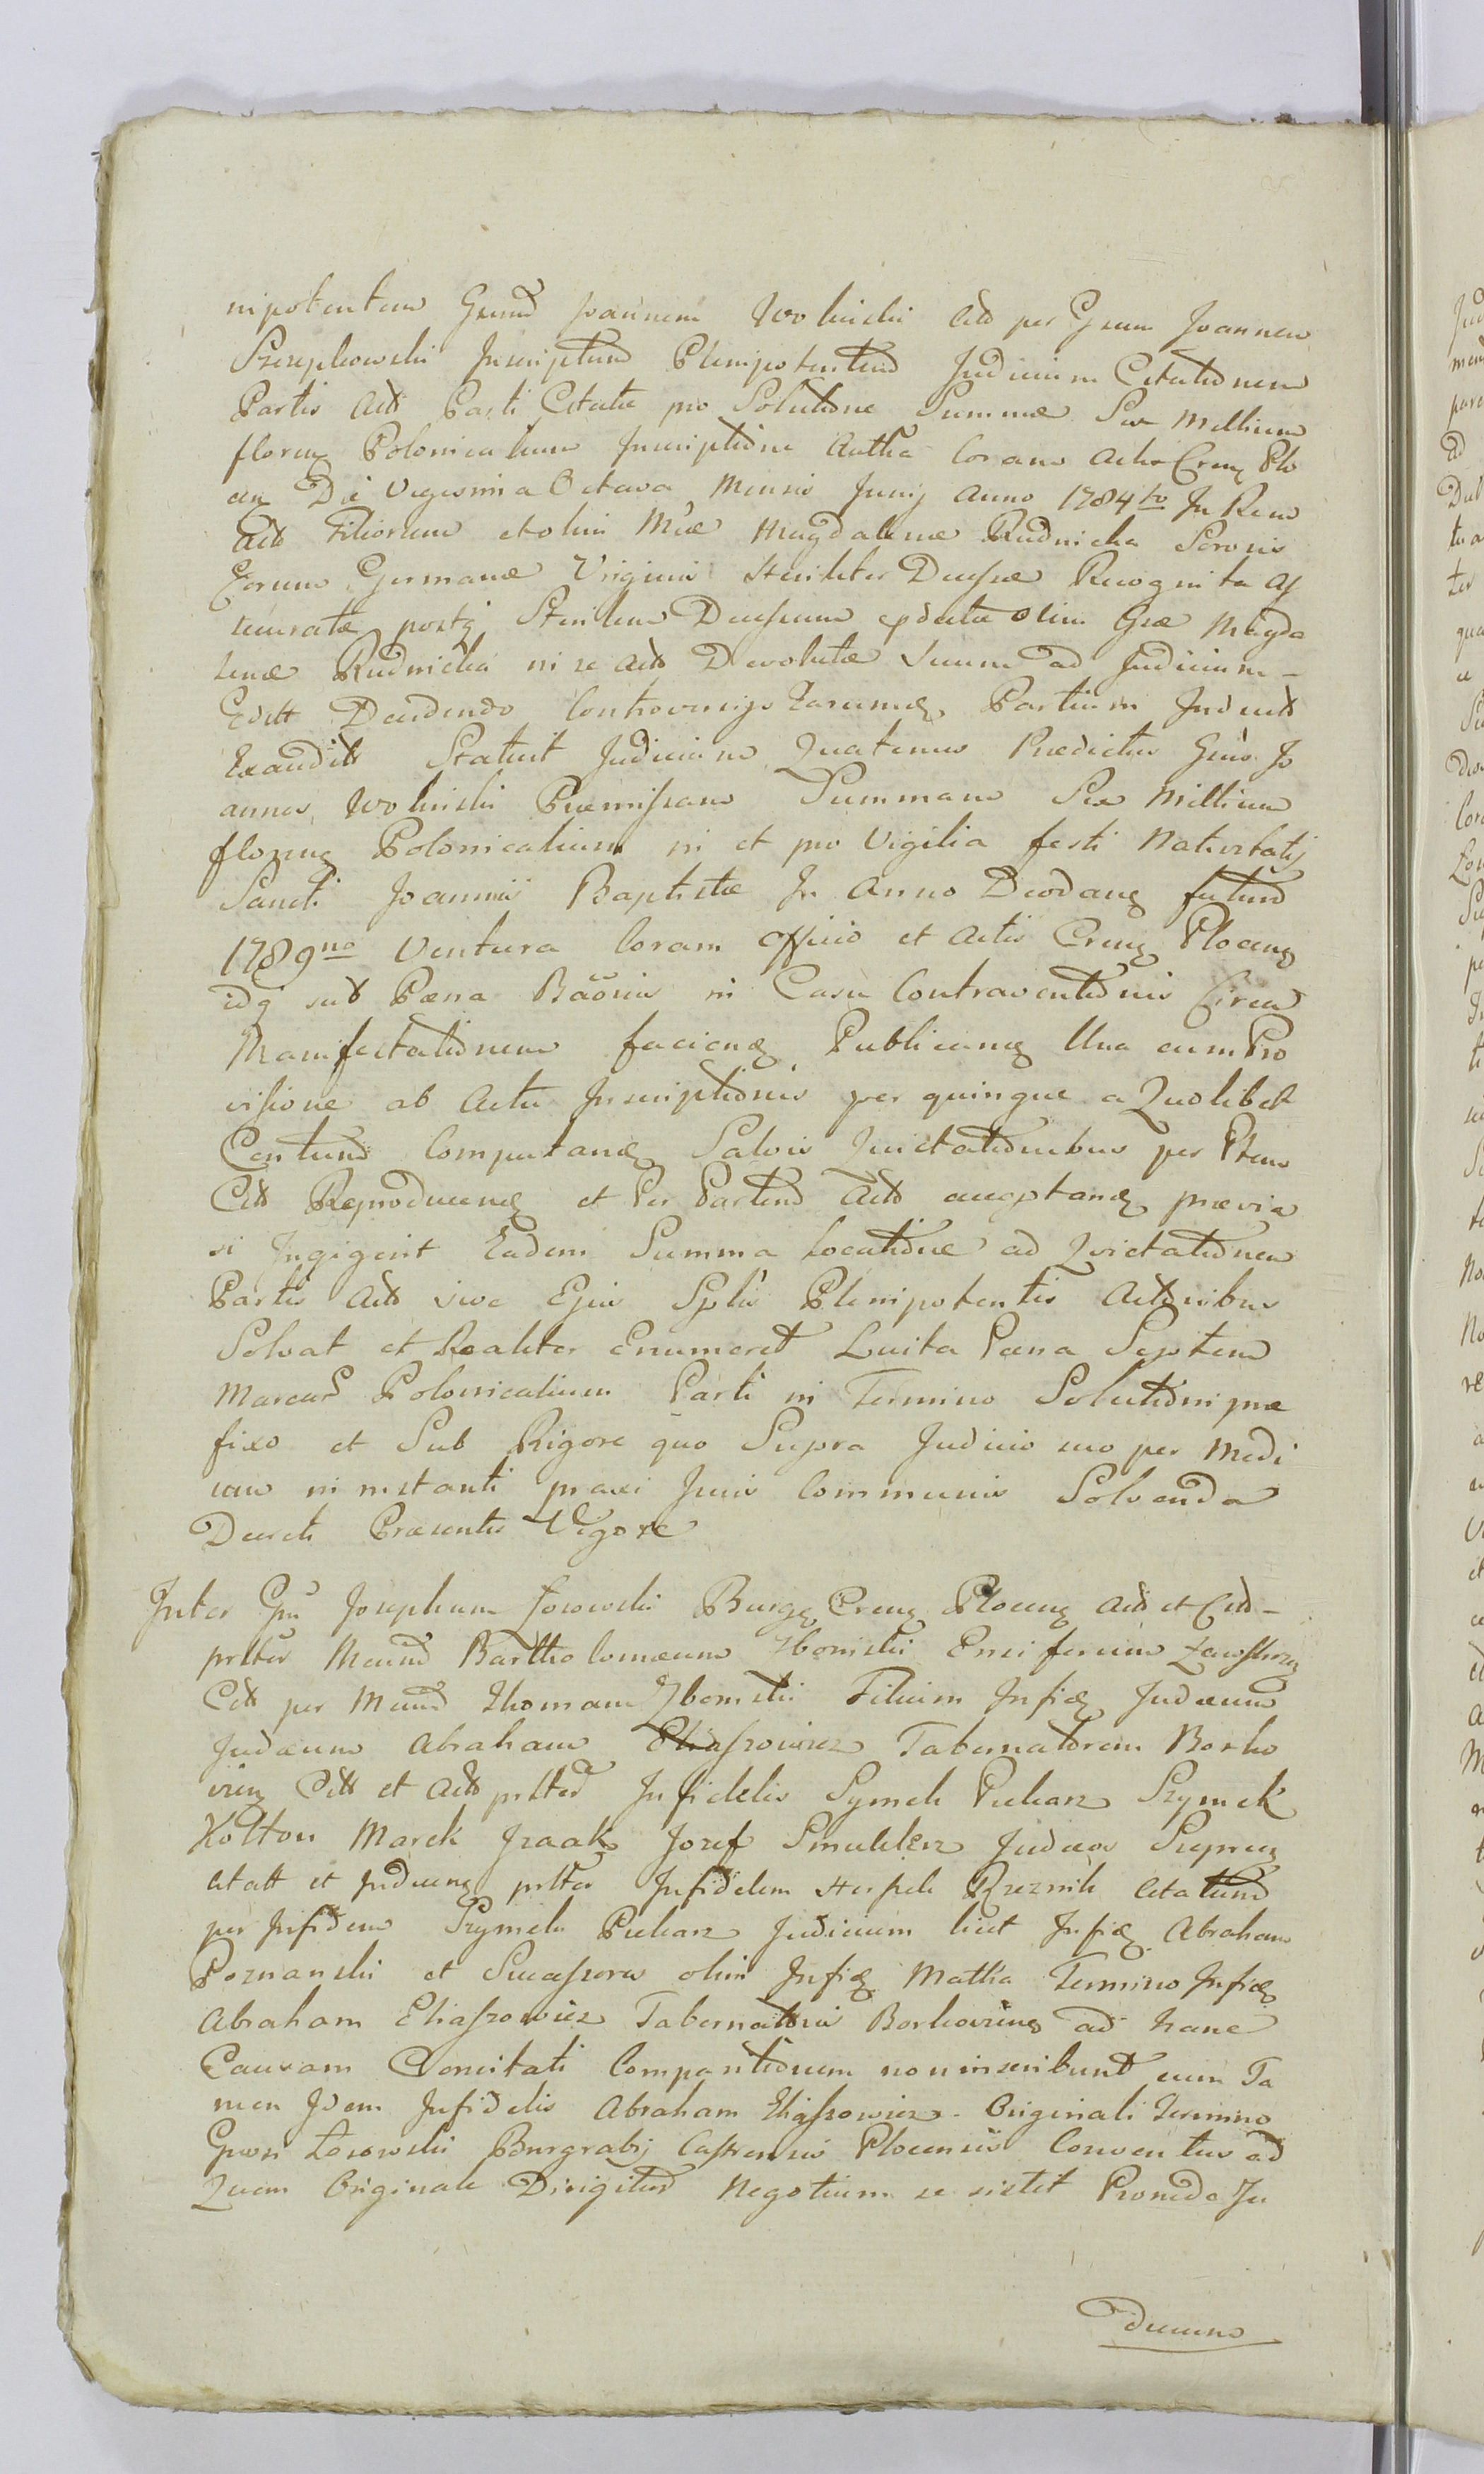 nipotentem Grund Joannem Wolinski Act per Grum Joannem
Szczepkowski Inscriptum Plenipotentem Judicium Citationem
Partis Act Parti Citatæ pro Solutione Summæ Sex Millium
floreng Polonicalium Inscriptione Authca Coram Actis Creng Plo
ceng Die Vigesima Octava Mensis Junij Anno 1784to In Rem
Act Filiorum et olim Mcæ Magdalenæ Rudnicka Sororis
Eorum Germanæ Virginis Steriliter Decessæ Recognita As
securatæ postq Sterilem Decessum p̄dictæ olim Gsæ Magda
lenæ Rudnicka in se Act Devolutæ Suum ad Judicium -
Edtt Decidendo Controversijs Earumq Partium in Judicio
Exauditis Statuit Judicium Quatenus Prædictus Gnus Jo
annes Wolinski Præmissam Summam Sex Millium
floreng Polonicalium in et pro Vigilia festi Nativitatis
Sancti Joannis Baptistæ In Anno Deodang futuro
1789no Ventura Coram Officio et Actis Creng Ploceng
idq sub Pæna Baōnis in Casu Contraventionis Circa
Manifestationem facieng Publicang Una cum Pro
visione ab Actu Inscriptionis per quinque a Quolibet
Centum Computang Salvis Quietationibus per Ptem
Ctt Reproduceng et Per Partem Act acceptang prævia
si Inigerit Eadem Summa locatione ad Quietationem
Partis Act sive Ejus Splis Plenipotentis Actoribus
Solvat et Realiter Enumeret Luita Pæna Septem
Marcar Polonicalium Parti in Termino Solutioni præ
fixo et Sub Rigore quo Supra Judicio suo per Medi
um in instanti praxi Juris Communis Solvenda
Decreti Præsentis Vigore
Inter Gm Josephum Losowski Burgg Creng Ploceng Act et Ctt -
prlter Mcum Bartholomæum Zbonski Ensiferum Zawskrzeng
Ctt per Mcum Thomam Zbonski Filium Infig Judæum
Judæum Abraham Eliaszowicz Tabernatorem Borko
vieng Ctt et Act prlter Infidelis Szymek Piekarz Szymek
Kolton Marek Jzaak Jozef Smuklerz Judæos Sieprceng
Citatt et Induceng prlter Infidelem Herszek Rzeznik Citatum
per Infidem Szymek Piekarz Judicium licet Infig Abraham
Poznanski et Successores olim Infig Matka Termino Infig
Abraham Eliaszowicz Tabernatoris Borkovieng ad hanc
Causam Concitati Comparitionem non inscribunt cum Ta
men Idem Infidelis Abraham Eliaszowicz Originali Termino
Gnosi Losowski Burgrabij Castrensis Plocensis Conventus ad
Quem Originale Dirigitur Negotium se sistet Proinde Ju
dicium